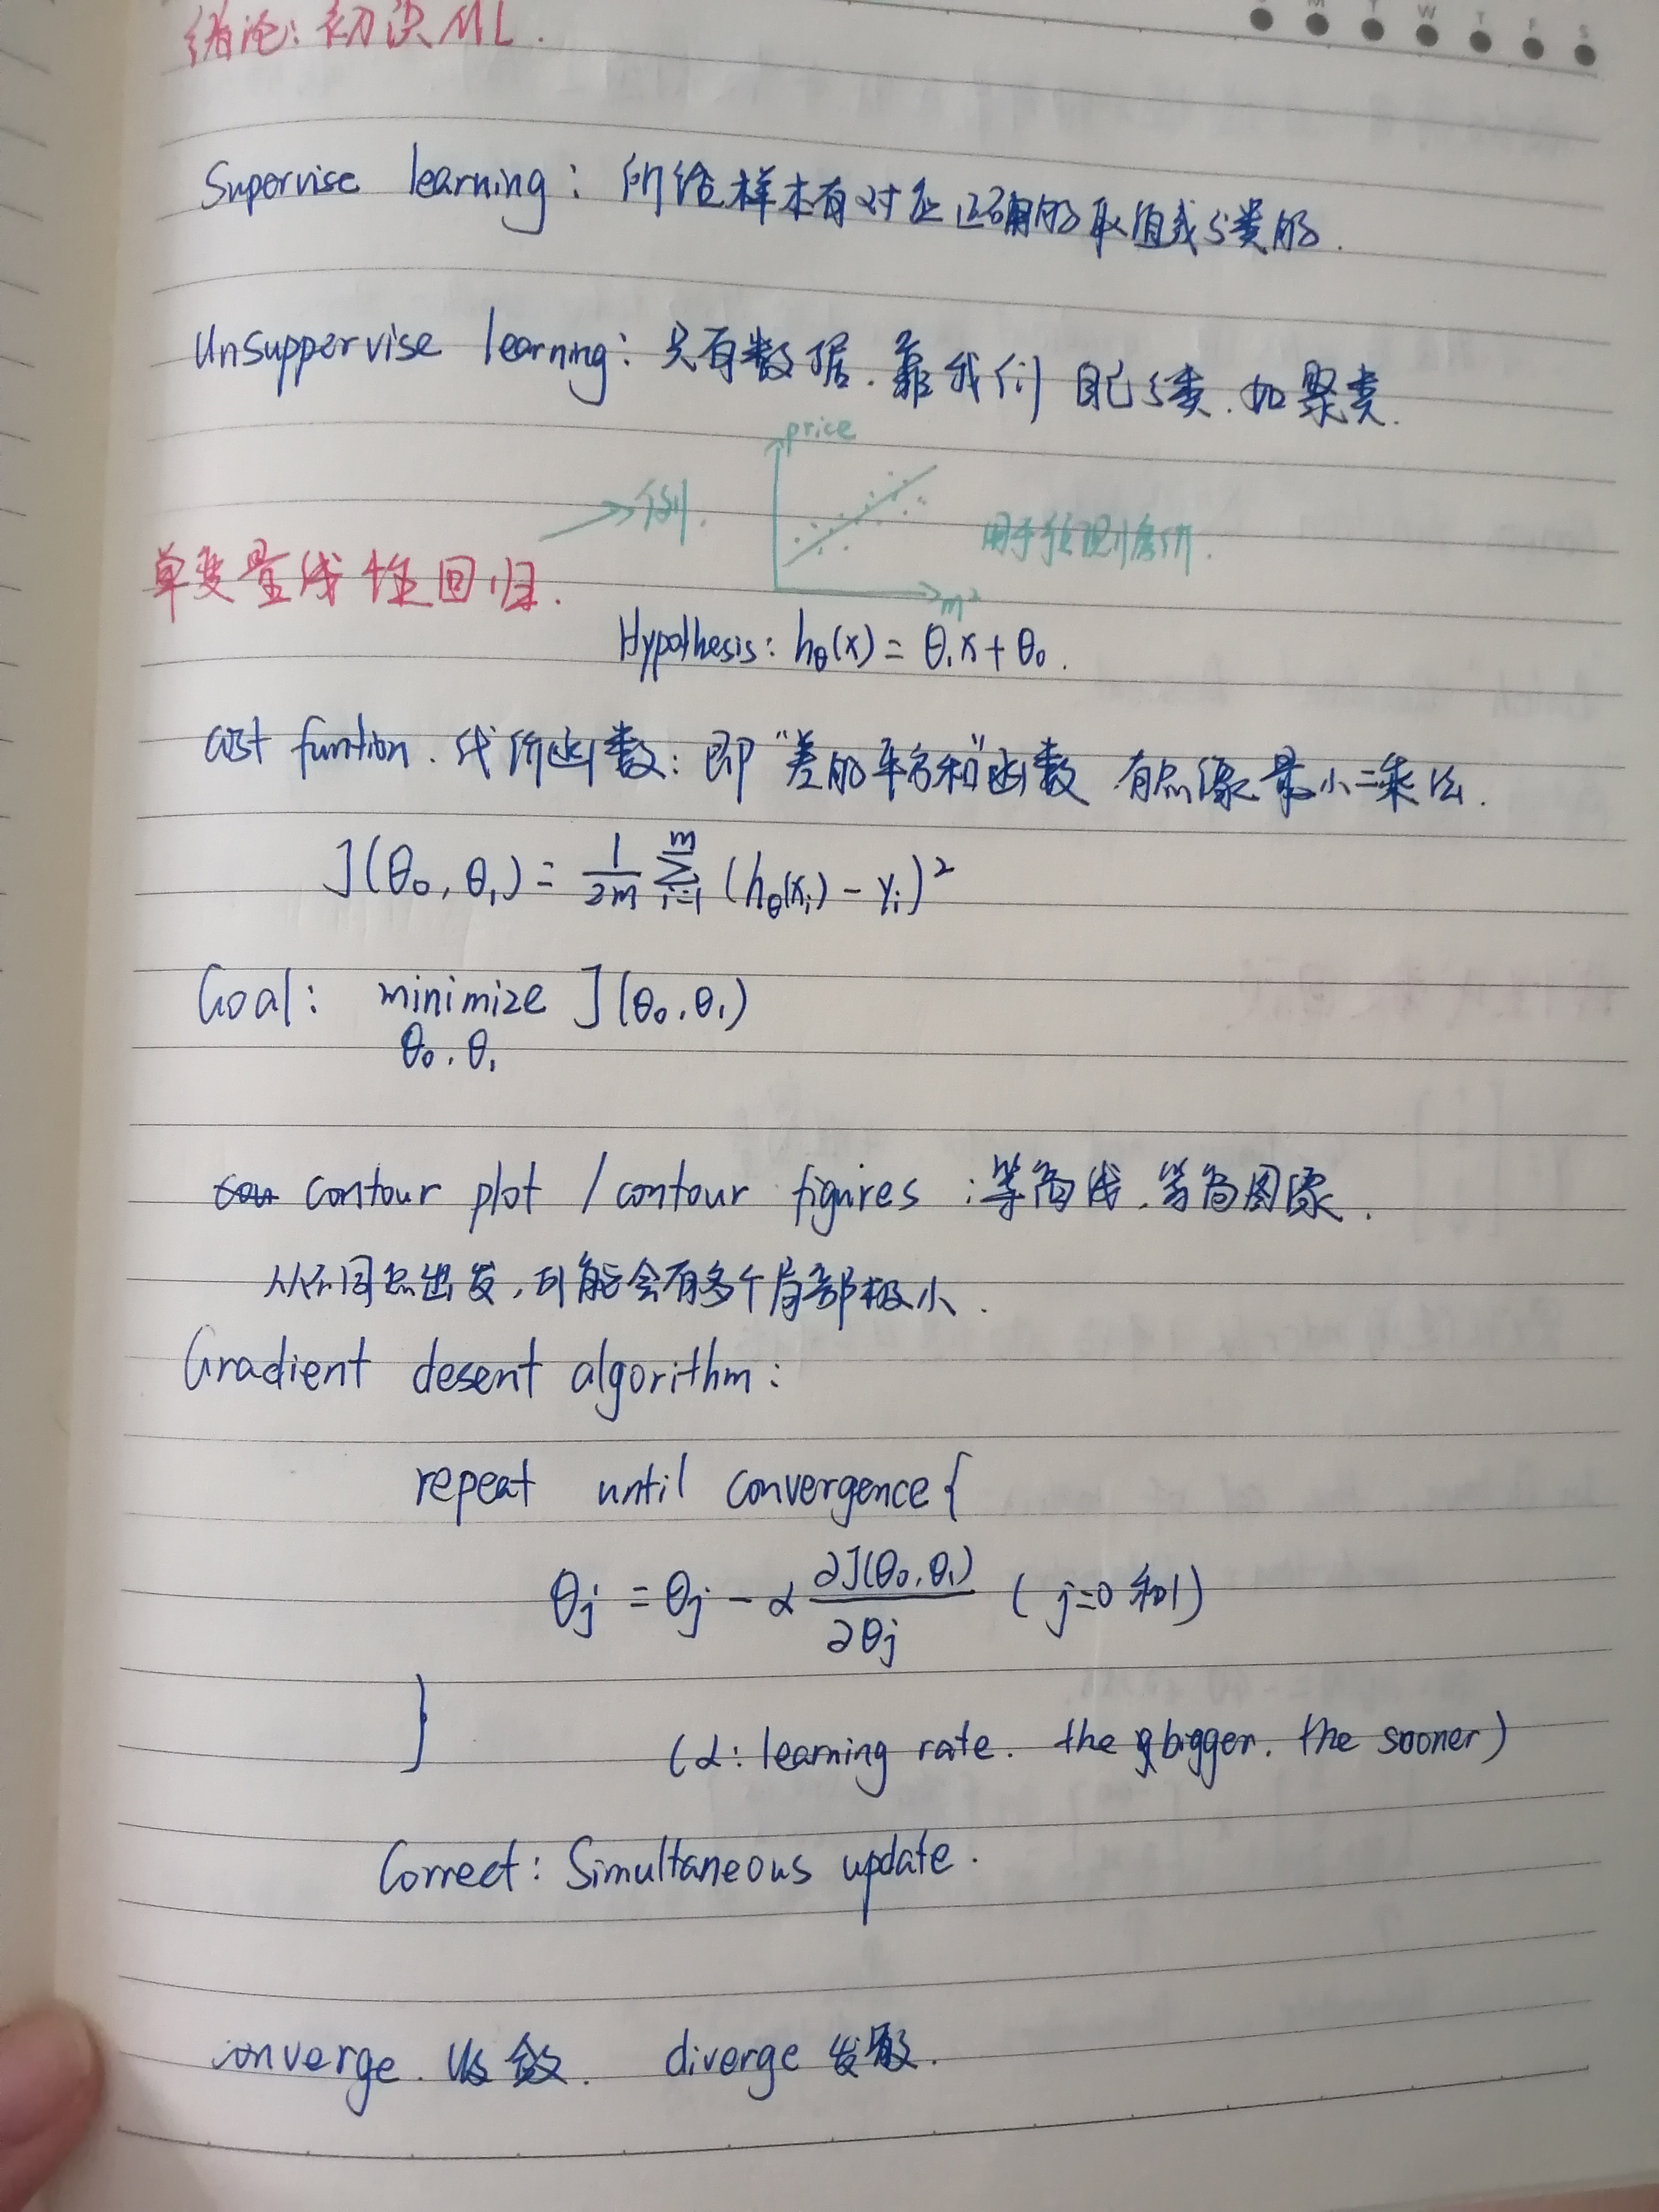 绪论:初识ML.
M T W T F S
Supervise learning: 所给样本有对应正确的取值或分类的.
Unsuppervise learning: 只有数据.靠我们自己分类.如聚类.
price
例.
用于预测房价.
m²
单变量线性回归.
Hypothesis: hθ(x) = θ₁x + θ₀.
cost funtion. 代价函数: 即"差的平方和"函数 有点像最小二乘法.
J(θ₀, θ₁) = 1/2m Σ_{i=1}^{m} (hθ(xᵢ) - yᵢ)²
Goal: minimize J(θ₀.θ₁)
θ₀.θ₁
contour plot / contour figures :等高线.等高图像.
从不同点出发,可能会有多个局部极小.
Gradient desent algorithm:
repeat until convergence{
θj = θj - α ∂J(θ₀.θ₁)/∂θj ( j=0 和1)
}
(α: learning rate. the bigger. the sooner)
Correct: Simultaneous update.
converge. 收敛. diverge 发散.